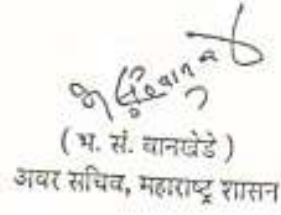 ( भ. सं. वानखेडे )
अवर सचिव, महाराष्ट्र शासन